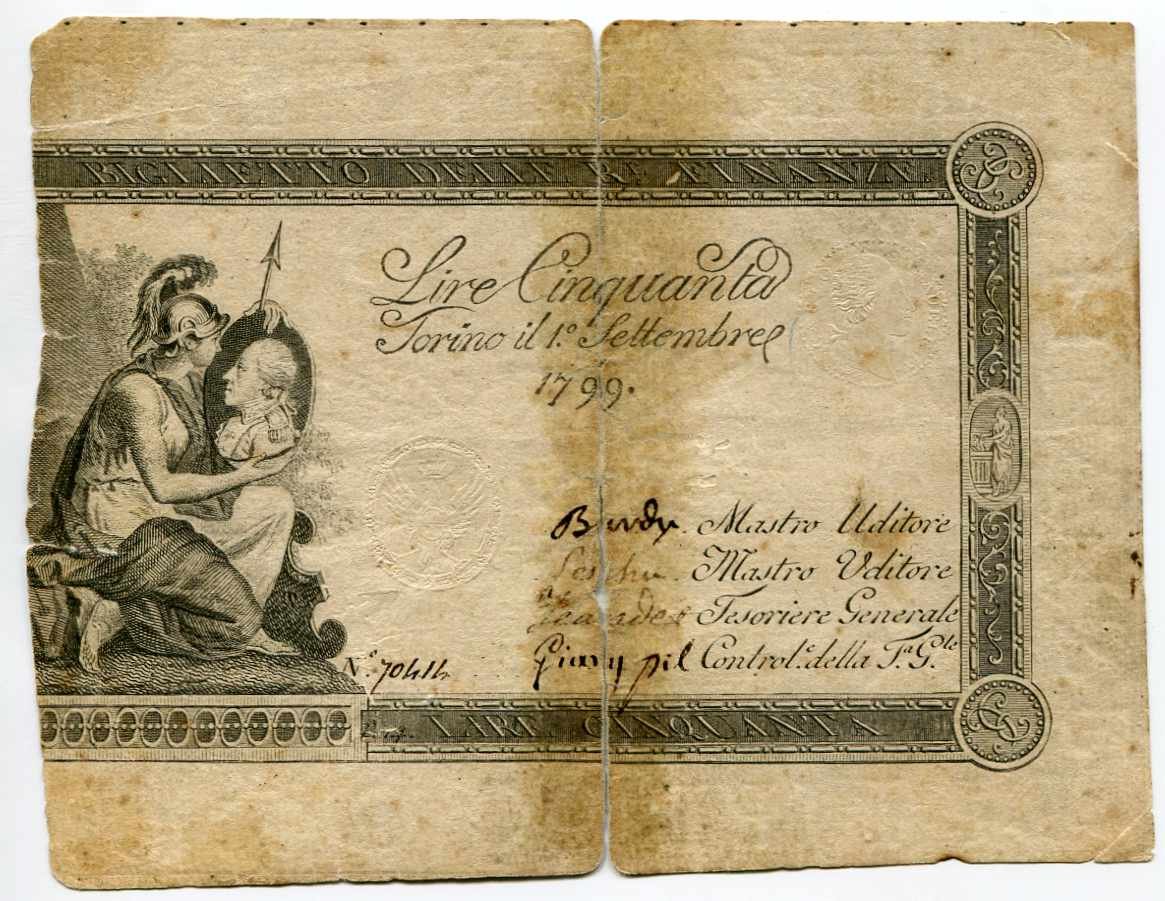 BIGLIETTO DELLE R.E FINANZE.
Lire Cinquanta
Torino il 1.º Settembre
1799.
Mastro Uditore
Mastro Vditore
Tesoriere Generale
Control.e della T.a G.le
N.º 70414
LIRE CINQUANTA